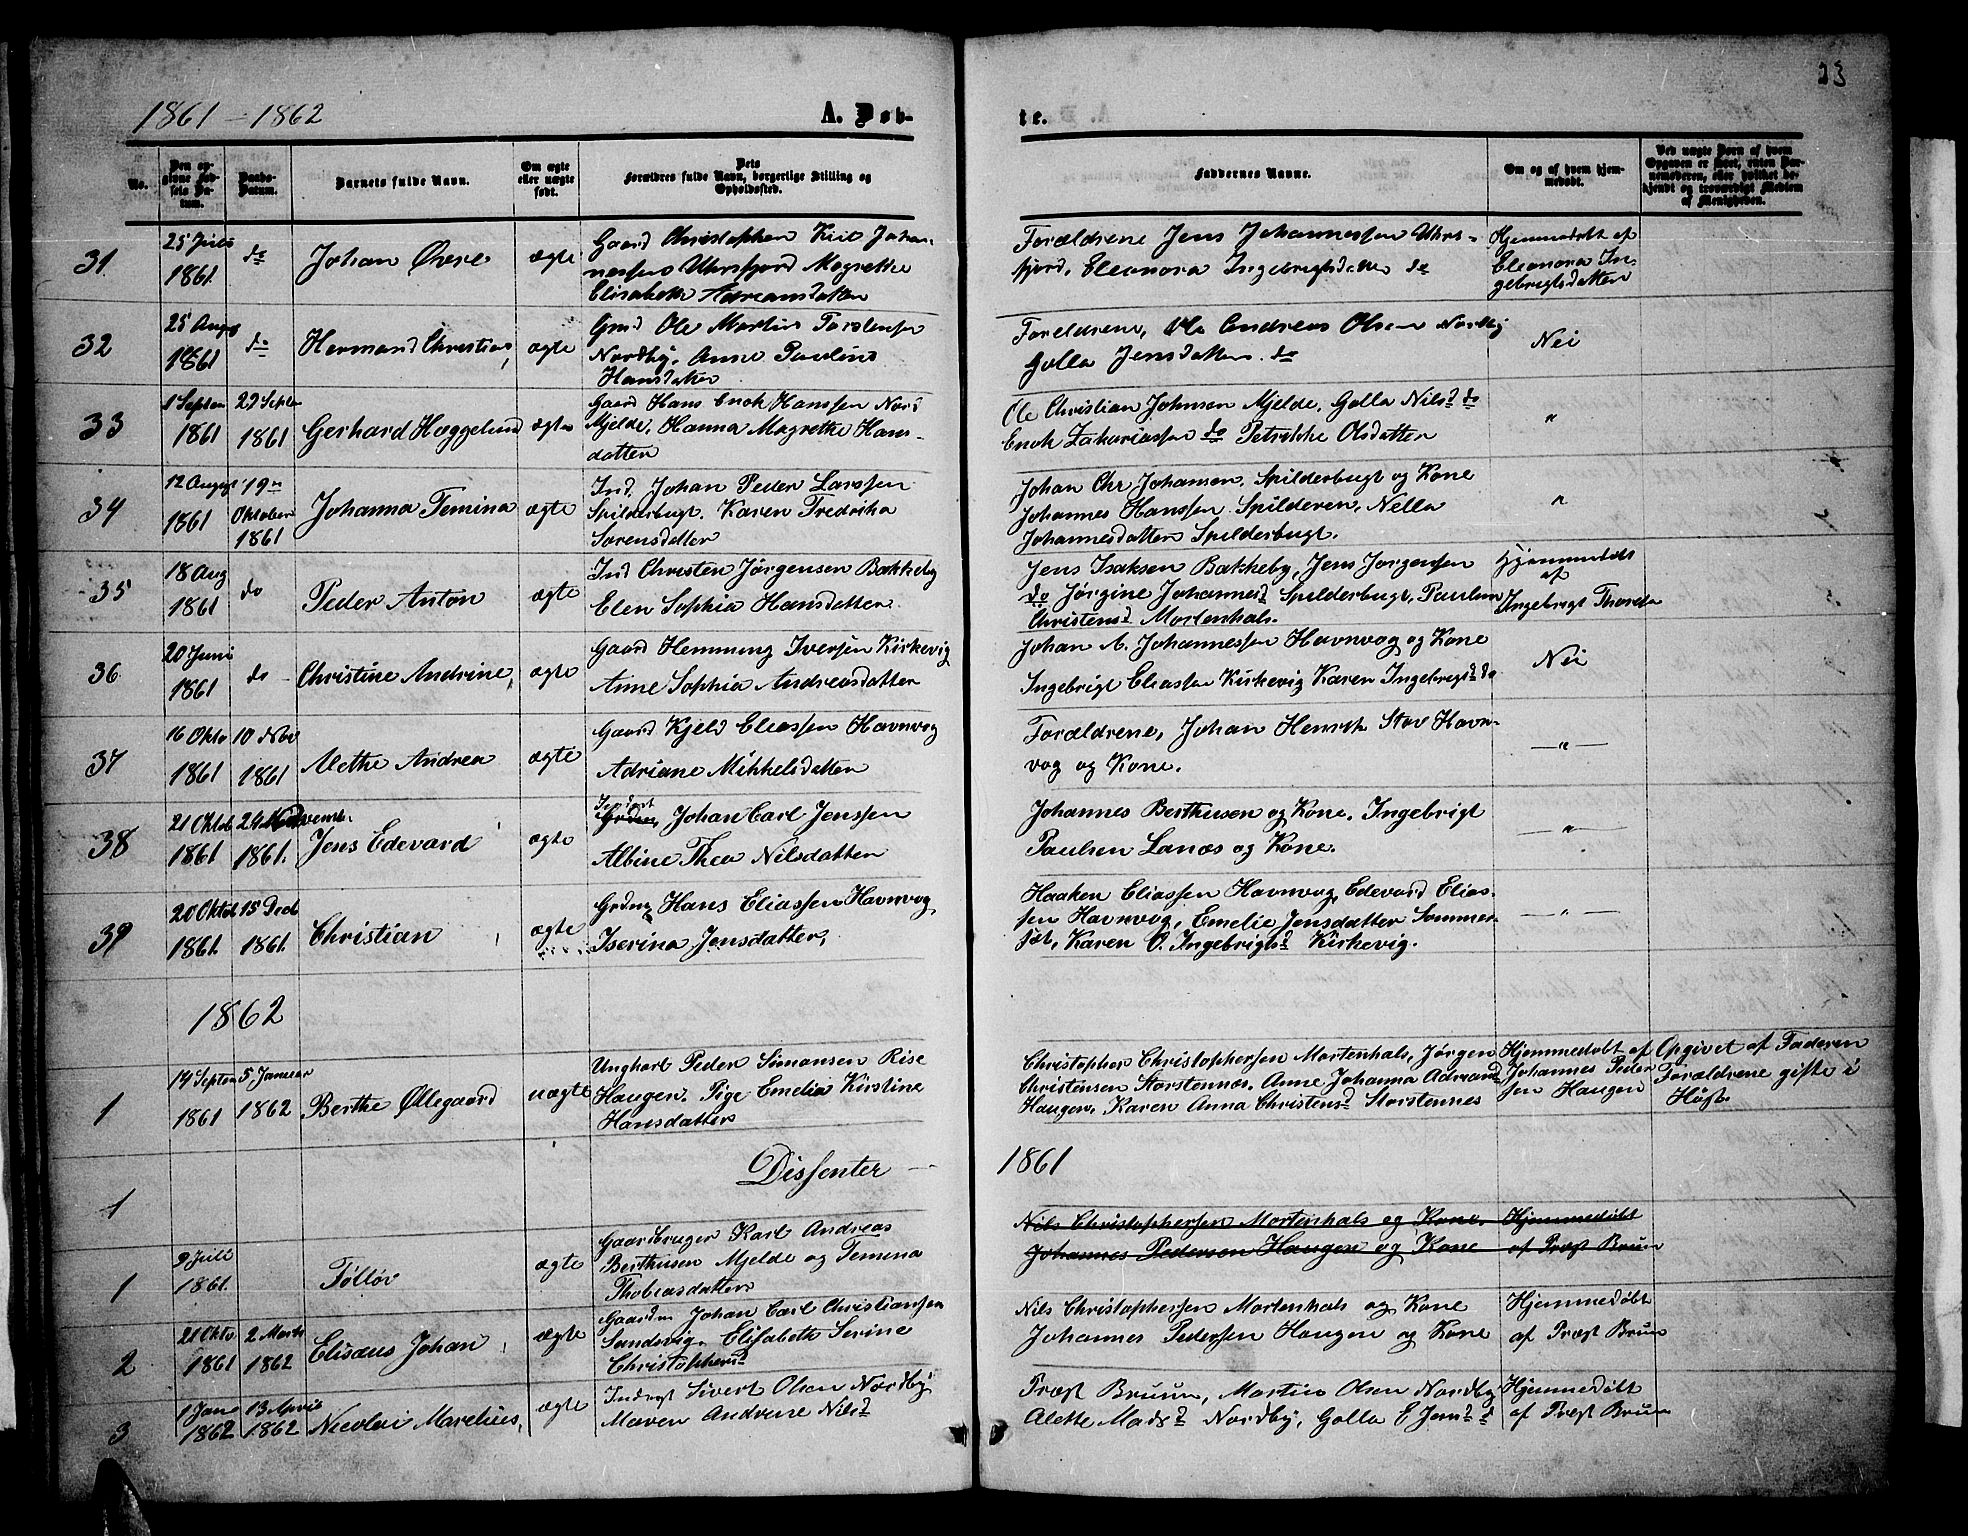 23
1861 - 1862
A. Døb-
te.
No.
Den op-
givne Fød-
sels Da-
tum.
Daabs-
Datum.
Barnets fulde Navn.
Om ægte
eller uægte
født.
Dets
Forældres fulde Navn, borgerlige Stilling og
Opholdssted.
Faddernes Navne.
Om og af hvem hjem-
medøbt.
Ved uægte Børn af hvem
Opgaven er skeet, enten Bar-
nemoderen, eller hvilket be-
kjendt og troværdigt Medlem
af Menigheden.
31
25 Juli
1861
do
Johan Øvre
ægte
Gaard Christopher Johan-
nessens Uhrsfjord Magrethe
Elisabeth Adriansdatter
Forældrene Jens Johannessen Uhrs-
fjord, Eleonora Ingebrigtsdatter do
Hjemmedøbt af
Eleonora In-
gebrigtsdatter
32
25 Aug
1861
do
Hermand Christian
ægte
Grd Ole Martin Torstensen
Nordby, Anne Pauline
Hansdatter
Foreldrene, Ole Andreas Olsen Nordby
Golla Jensdatter do
Nei
33
1 Septem
1861
29 Septe
1861
Gerhard Heggelund
ægte
Gaard Hans Enok Hanssen Nord
Mjelde, Hanna Magrethe Hans-
datter
Ole Christian Johnsen Mjelde, Golla Nilsd do
Enok Zakariassen do Petrikke Olsdatter
"
34
12 August
1861
19de
Oktober
1861
Johanna Temina
ægte
Ind. Johan Peder Larssen
Spilderbugt. Karen Fredrika
Sørensdatter
Johan Chr Johansen, Spilderbugt og Kone
Johannes Hanssen Spilderen, Nella
Johannesdatter Spilderbugt.
"
35
18 Aug
1861
do
Peder Anton
ægte
Ind Christen Jørgensen Bakkeby
Elen Sophia Hansdatter
Jens Isaksen Bakkeby, Jens Jørgensen
do Jørgine Johannesd Spilderbugt, Pauline
Christensd Mortenhals.
Hjemmedøbt
af
Ingebrigt Thoresen
36
20 Juni
1861
do
Christine Andrine
ægte
Gaard Hemming Iversen Kirkevig
Anne Sophia Andreasdatter
Johan A. Johannessen Havnvog og Kone
Ingebrigt Eliassen Kirkevig Karen Ingebrigtsd do
Nei
37
16 Okto
1861
10 Nov
1861
Methe Andrea
ægte
Gaard Kjeld Eliassen Havnvog
Adriane Mikkelsdatter
Forældrene, Johan Henrik Stov Havn-
vog og Kone.
"
38
21 Oktob
1861
24 Novembr.
1861.
Jens Edevard
ægte
Inderst
Grdm, Johan Carl Jenssen
Albine Thea Nilsdatter
Johannes Berthusen og Kone, Ingebrigt
Paulsen Lanæs og Kone.
"
39
20 Oktob
1861
15 Decb
1861.
Christian
ægte
Grdm Hans Eliassen Havnvog
Iserina Jensdatter,
Haaken Eliassen Havnvog, Edevard Elias-
sen Havnvog, Emelie Jensdatter Sommer-
sæt, Karen O. Ingebrigtsd Kirkevig.
"
1862
1
14 Septem
1861
5 Januar
1862
Berthe Øllegaard
uægte
Ungkarl Peder Simonsen Rise
Haugen. Pige Emelia Kirstine
Hansdatter
Christopher Christophersen Mortenhals, Jørgen
Christensen Storstennæs. Anne Johanna Adriansd
Haugen, Karen Anna Christensd Storstennes
Hjemmedøbt af
Johannes Peder
sen Haugen
Opgivet af Faderen
Forældrene gifte i
Høst.
Dissenter
1861
1
Nils Christophersen Mortenhals og Kone.
Johannes Pedersen Haugen og Kone
Hjemmedøbt
af Præst Bruun
1
9 Juli
1861.
Tolløv
ægte
Gaardbruger Karl Andreas
Berthusen Mjelde og Temina
Thobiasdatter
2
21 Okto
1861
2 Marts
1862
Elisæus Johan
ægte
Gaardm Johan Carl Christiansen
Sandvig. Elisabeth Serine
Christophersd
Nils Christophersen Mortenhals og Kone
Johannes Pedersen Haugen og Kone
Hjemmedøbt
af Præst Bruun
3
1 Janu
1862
13 April
1862
Nicolai Marelius,
ægte
Inderst Sivert Olsen Nordby
Maren Andrine Nilsd
Præst Bruun, Martin Olsen Nordby
Alette Madsd Nordby, Golla E Jensd d
Hjemmedøbt
af Præst Bruun